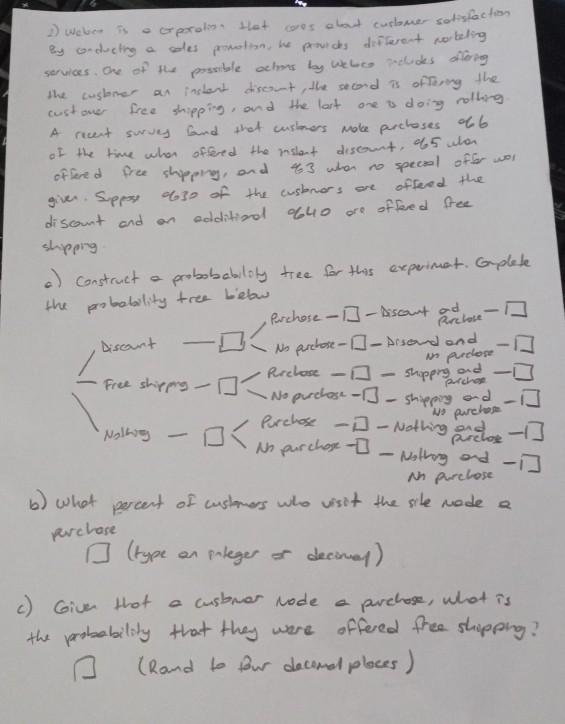 2) Webco is a corporation that cares about customer satisfaction
By conducting a sales promotion, he provides different marketing
services. One of the possible actions by Webco includes offering
the customer an instant discount, the second is offering the
customer free shipping, and the last one is doing nothing.
A recent survey found that customers make purchases %6
of the time when offered the instant discount, %5 when
offered free shipping, and %3 when no special offer was
given. Suppose %30 of the customers are offered the
discount and an additional %40 are offered free
shipping.
a) Construct a probobability tree for this experiment. Complete
the probability tree below
Discount — Purchase — Discount and Purchase —
No purchase — Discount and No purchase —
Free shipping — Purchase — shipping and purchase —
No purchase — shipping and No purchase —
Nothing — Purchase — Nothing and purchase —
No purchase — Nothing and No purchase —
b) What percent of customers who visit the site made a
purchase
(type an integer or decimal)
c) Given that a customer made a purchase, what is
the probability that they were offered free shipping?
(Round to four decimal places)